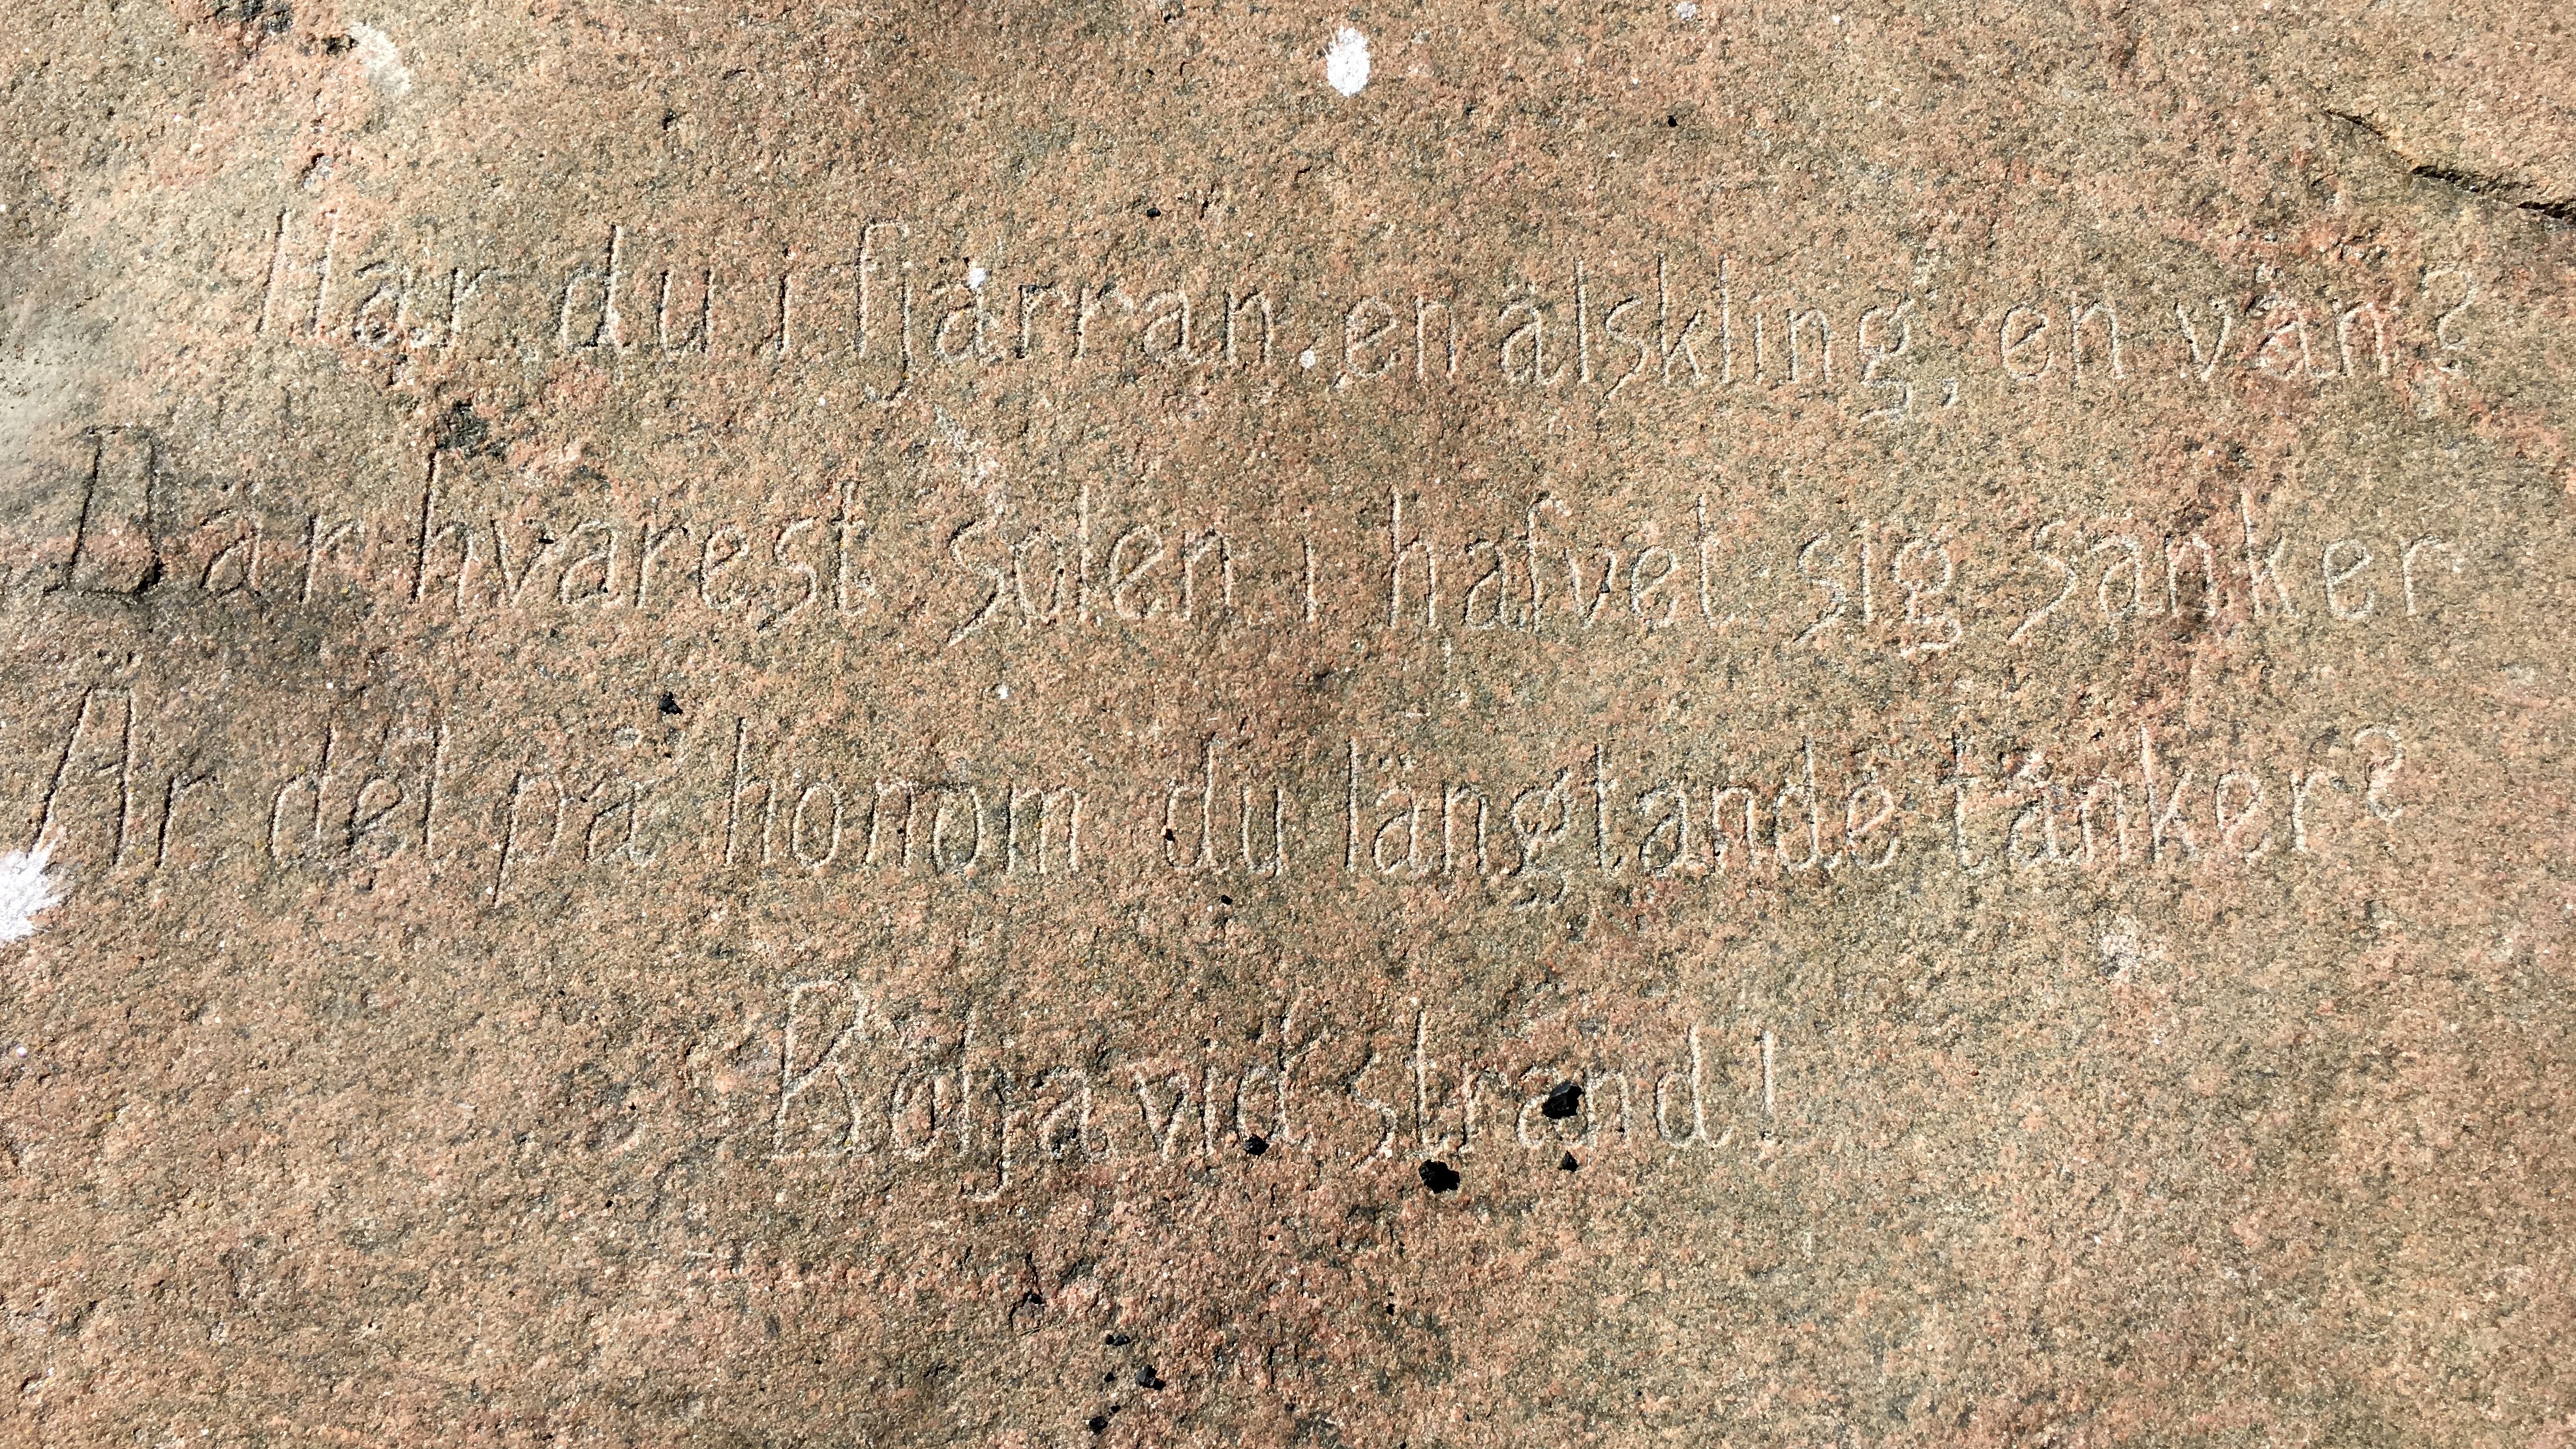 Har du i fjärran en älskling, en vän?
Där hvarest solen i hafvet sig sänker
Är det på honom du längtande tänker?
Bölja vid strand!